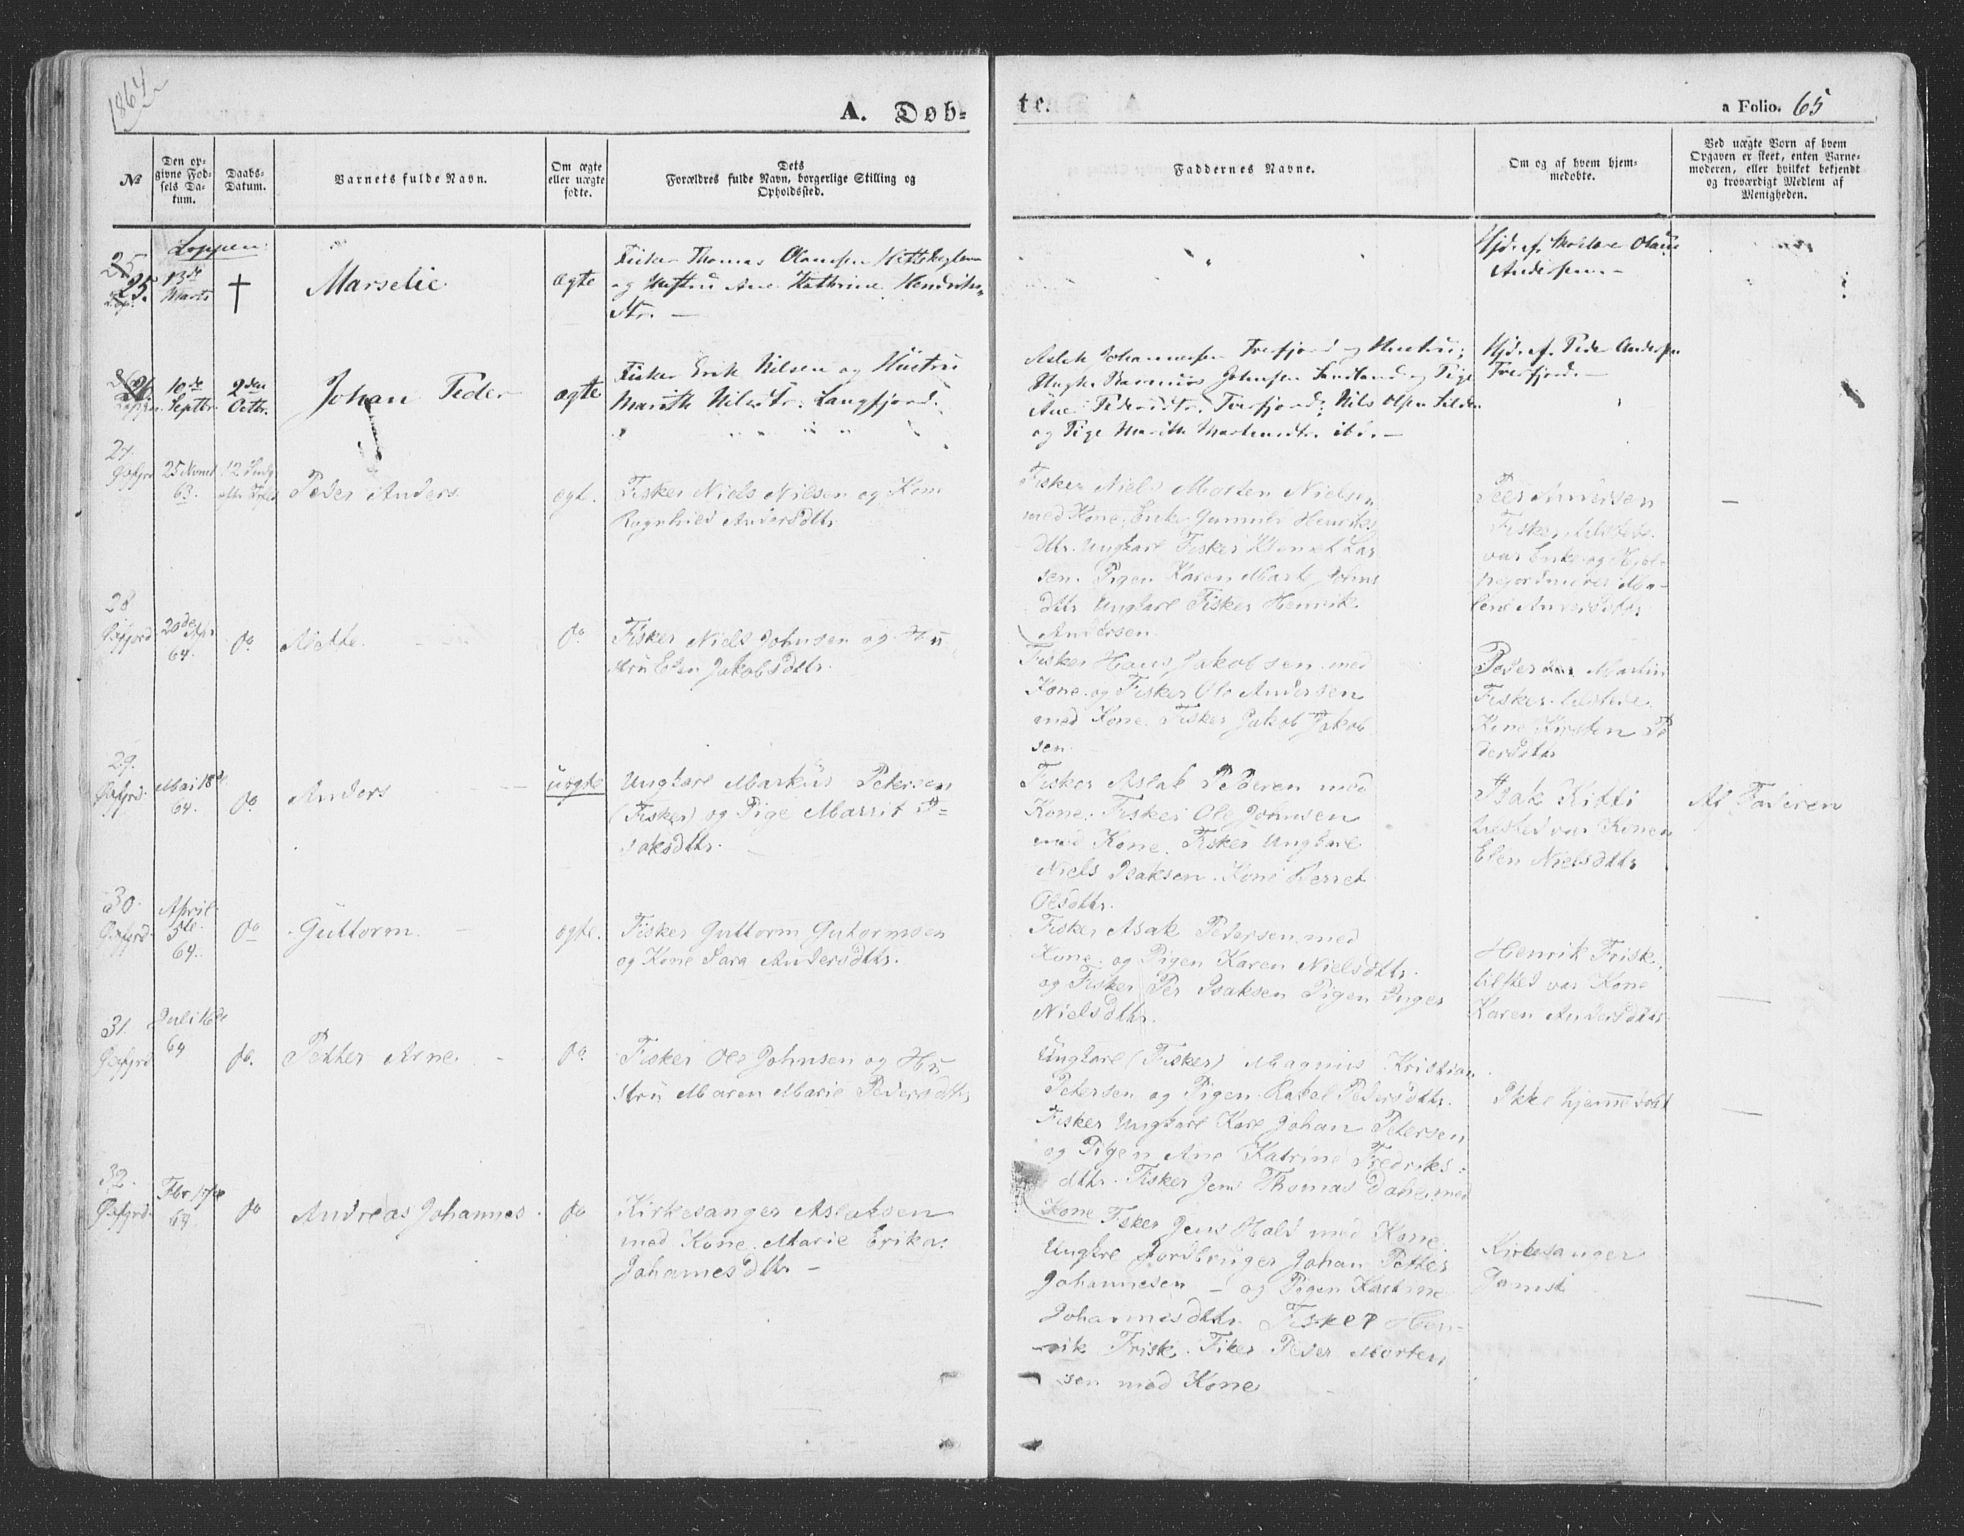 1864
A. Døb-
te.
a Folio. 65
No
Den op-
givne Fød-
sels Da-
tum.
Daabs-
Datum.
Barnets fulde Navn.
Om ægte
eller uægte
fødte.
Dets
Forældres fulde Navn, borgerlige Stilling og
Opholdssted.
Faddernes Navne.
Om og af hvem hjem-
medøbte.
Ved uægte Børn af hvem
Opgaven er skeet, enten Barne-
moderen, eller hvilket bekjendt
og troværdigt Medlem af
Menigheden.
Loppen.
25.
13de
Marts
†
Marselie
ægte
Fisker Thomas Olausen
og Hustru Ane Kathrine Hendriks-
dtr. —
Hjdøf. Olaus
Andersen —
26.
10de
Septbr
2den
Octbr.
Johan Peder
ægte
Fisker Erik Nilsen og Hustru
Marith Nilsdtr. Langfjord.
Aslak Johannessen Tverfjord og Hustru;
Ungk. Rasmus Johnsen og Pige
Ane Pedersdtr. Tverfjord; Nils Olsen
og Pige Marith Mortensdtr. ibd. —
Hjdøf. Peder Andersen
Tverfjord. —
27.
Øxfjrd
25 Novmb
63.
12. Sndg
efter
Peder Anders.
ægt.
Fisker Niels Nilsen og Kone
Ragnhild Andersdttr.
Fisker Niels Morten Nielsen
med Kone. Enke Gunnild Henriks
dttr. Ungkarl Fisker Klemet Lar
sen. Pigen Karen Marit Johns
dttr Ungkarl Fisker Henrik
Andersen.
Peer Andersen
Fisker, tilstede
var Enke og Hjel-
pejordmoder Ma-
lene Andersdtter
28
Øxfjord
20de Apr.
64.
do
Niette.
do
Fisker Niels Johnsen og Hu
stru Elen Jakobsdttr.
Fisker Hans Jakobsen med
Kone. og Fisker Ole Andersen
med Kone. Fisker Jakob Jakob
sen.
Peder Martin
Fisker. tilstede
Kone Kirsten Pe
dersdttr
29.
Øxfjrd.
Mai 18de
64.
do
Anders
uægte
Ungkarl Markus Petersen
(Fisker) og Pige Marrit I-
saksdttr.
Fisker Aslak Pederen med
Kone. Fisker Ole Johnsen
med Kone. Fisker Ungkarl
Niels Isaksen. Kone Berret
Olsdttr.
Isak Kitti
tilsted var Konen
Elen Nielsdttr
Af Faderen
30.
Øxfjrd.
April
5te.
64.
do
Guttorm.
ægte.
Fisker Guttorm Gutormsen
og Kone Sara Andersdttr.
Fisker Asak Pedersen med
Kone. og Pigen Karen Nielsdttr.
og Fisker Per Isaksen Pigen Inger
Nielsdttr.
Henrik Frisk.
tilsted var Kone
Karen Andersdtter
31.
Øxfjrd
Juli 16de
64
do.
Petter Arne
do
Fisker Ole Johnsen og Hu
stru Maren Marie Pedersdttr
Ungkarl (Fisker) Magnus Kristian
Petersen og Pigen Rakel Pedersdttr.
Fisker Ungkarl Karl Johan Petersen
og Pigen Ane Katrine Fredriks
dttr. Fisker Jens Thomas Dahl med
Kone
Ikke hjemmedøbt
32.
Øxfjrd.
Fbr 17de
64
do
Andreas Johannes
do
Kirkesanger Aslaksen
med Kone. Marie Erika
Johanesdttr —
Fisker Jens Hals med Kone
Ungkrl Jordbruger Johan Petter
Johannesen — og Pigen Katrine
Johannesdttr. Fisker Hen-
rik Frisk. Fisker Peder Morten
sen med Kone
Kirkesanger